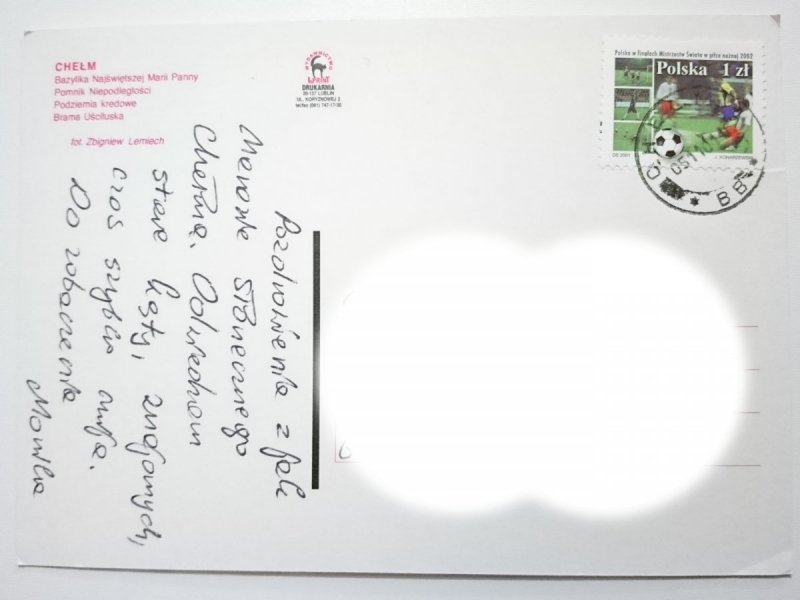 CHEŁM
Bazylika Najświętszej Marii Panny
Pomnik Niepodległości
Podziemia kredowe
Brama Uściłuska
fot. Zbigniew Lemiech
WYDAWNICTWO
DRUKARNIA
20-137 LUBLIN
UL. KORYZNOWEJ 2
Polska w finałach Mistrzostw Świata w piłce nożnej 2002
Polska 1 zł
OS 2001
J. KONARZEWSKI
BB
Pozdrowienia z
słonecznego
Chełma. Odwiedzam
stare kąty, znajomych,
czas szybko mija.
Do zobaczenia
Monika